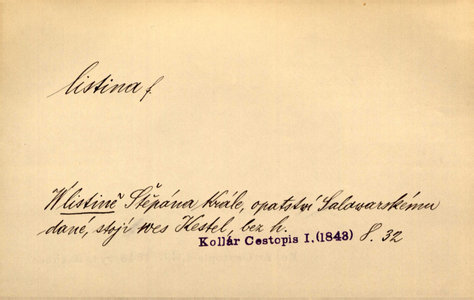 listina f.
W listině Štěpána Krále, opatství Salawarskému
dané, stojí wes Kestel, bez h.
Kollár Cestopis I. (1843) S. 32